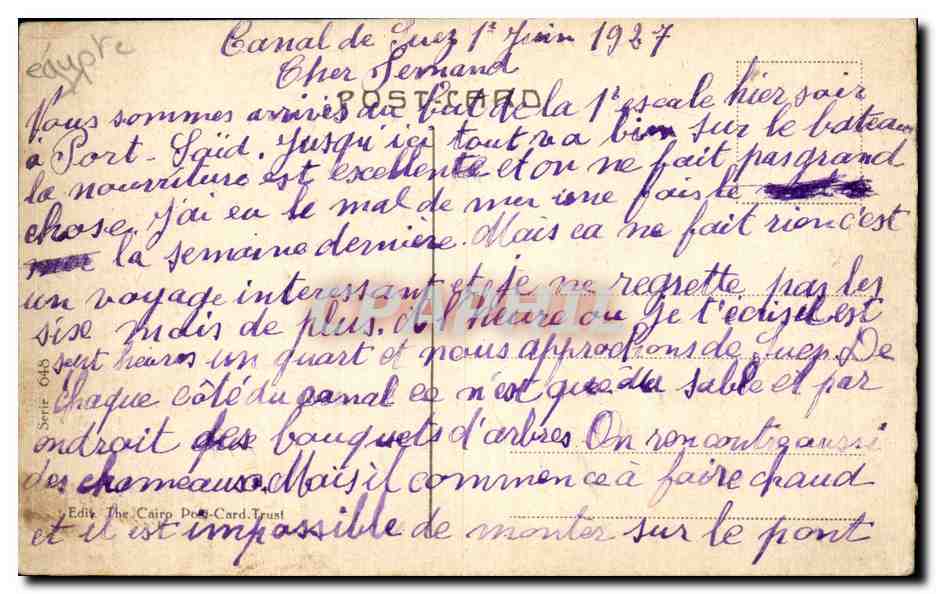 égypte
Canal de Suez 1r Juin 1927
Cher Fernand
POST-CARD
Vous sommes arrivés au but de la 1r escale hier soir
à Port-Saïd. Jusqu'ici tout va bien sur le bateau
la nourriture est excellente et on ne fait pas grand
chose. J'ai eu le mal de mer une fois le
la semaine dernière. Mais ca ne fait rien c'est
un voyage interessant et je ne regrette pas les
sise mois de plus. A l'heure ou je t'écris il est
sept heures un quart et nous approchons de Suez. De
chaque côté du canal ce n'est que du sable et par
endroit des bouquets d'arbres On rencontre aussi
des chameaux. Mais il commence à faire chaud
et il est impossible de monter sur le pont
Serie 648
Edit. The Cairo Post-Card.Trust
CPAPHIL